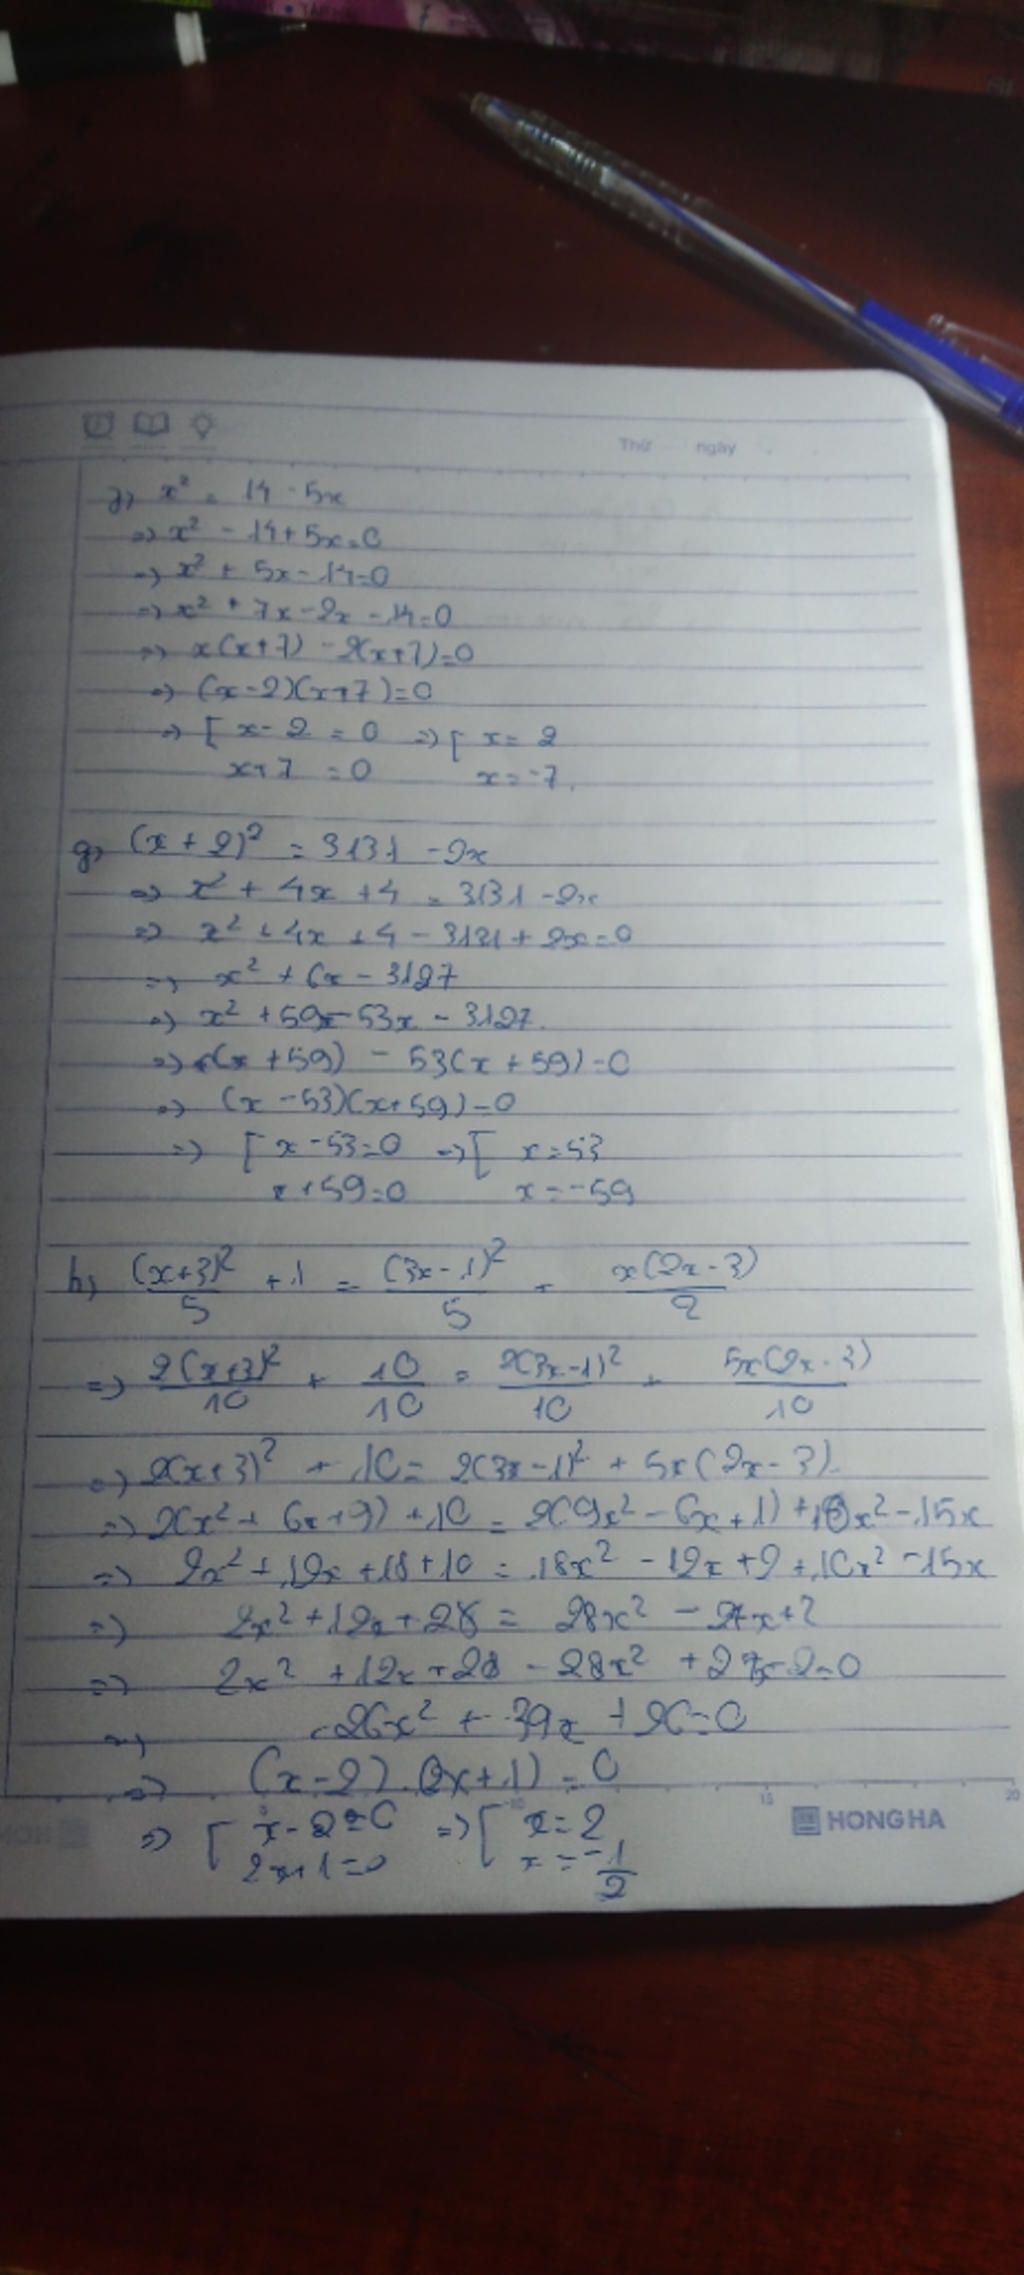 Thứ ngày
x² = 14 - 5x
=> x² - 14 + 5x = 0
=> x² + 5x - 14 = 0
=> x² + 7x - 2x - 14 = 0
=> x(x+7) - 2(x+7) = 0
=> (x-2)(x+7) = 0
=> [ x - 2 = 0 => [ x = 2
x+7 = 0 x = -7.
g) (x + 2)² = 3131 - 2x
=> x² + 4x + 4 = 3131 - 2x
=> x² + 4x + 4 - 3131 + 2x = 0
=> x² + 6x - 3127
=> x² + 59x - 53x - 3127.
=> x(x + 59) - 53(x + 59) = 0
=> (x - 53)(x + 59) = 0
=> [ x - 53 = 0 => [ x = 53
x + 59 = 0 x = -59
h) (x+3)²/5 + 1 = (3x - 1)²/5 + x(2x - 3)/2
=> 2(x+3)²/10 + 10/10 = 2(3x-1)²/10 + 5x(2x - 3)/10
=> 2(x+3)² + 10 = 2(3x-1)² + 5x(2x - 3)
=> 2(x² + 6x + 9) + 10 = 2(9x² - 6x + 1) + 10x² - 15x
=> 2x² + 12x + 18 + 10 = 18x² - 12x + 2 + 10x² - 15x
=> 2x² + 12x + 28 = 28x² - 27x + 2
=> 2x² + 12x + 28 - 28x² + 27x - 2 = 0
=> -26x² + 39x + 26 = 0
=> (x - 2).(2x + 1) = 0
=> [ x - 2 = 0 => [ x = 2
2x + 1 = 0 x = -1/2
15 20
HONG HA